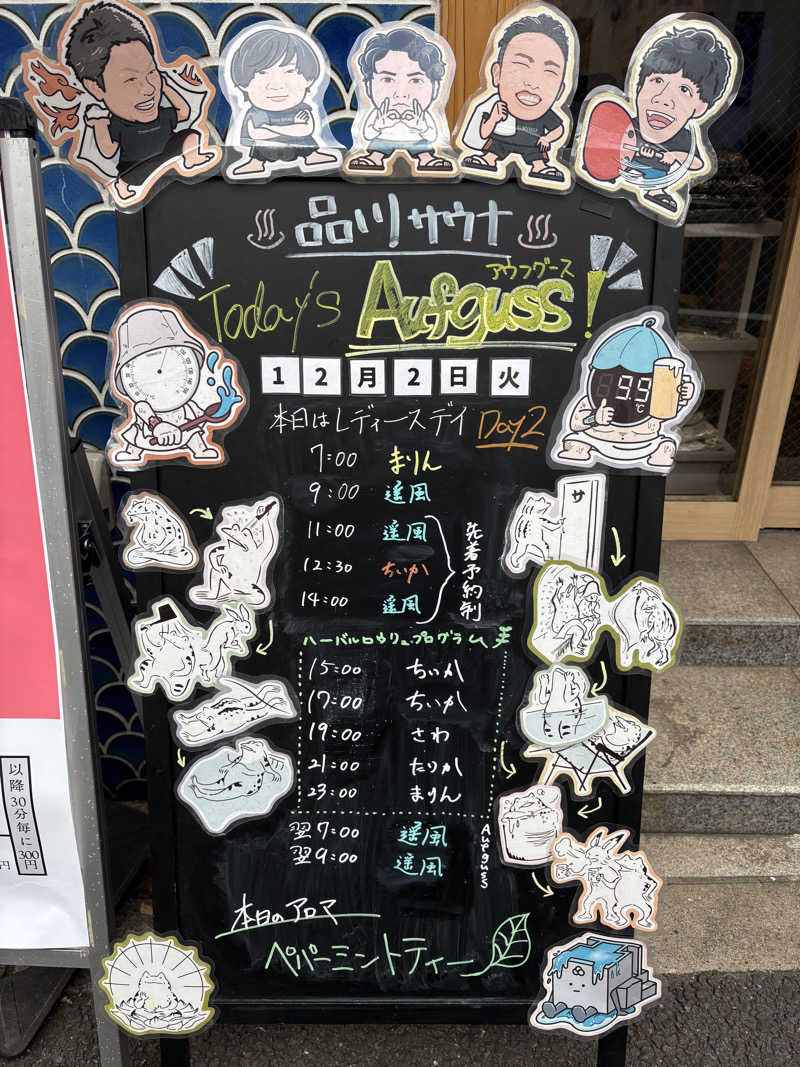 品川サウナ
アウフグース
Today's Aufguss!
12月2日火
本日はレディースデイ Day2
7:00 まりん
9:00 遥風
11:00 遥風
12:30 ちいか
14:00 遥風
先着予約制
ハーバルロウリュプログラム
15:00 ちぃか
17:00 ちぃか
19:00 さわ
21:00 たりか
23:00 まりん
翌7:00 遥風
翌9:00 遥風
Aufguss
本日のアロマ
ペパーミントティー
サ
99℃
以降30分毎に300円
円